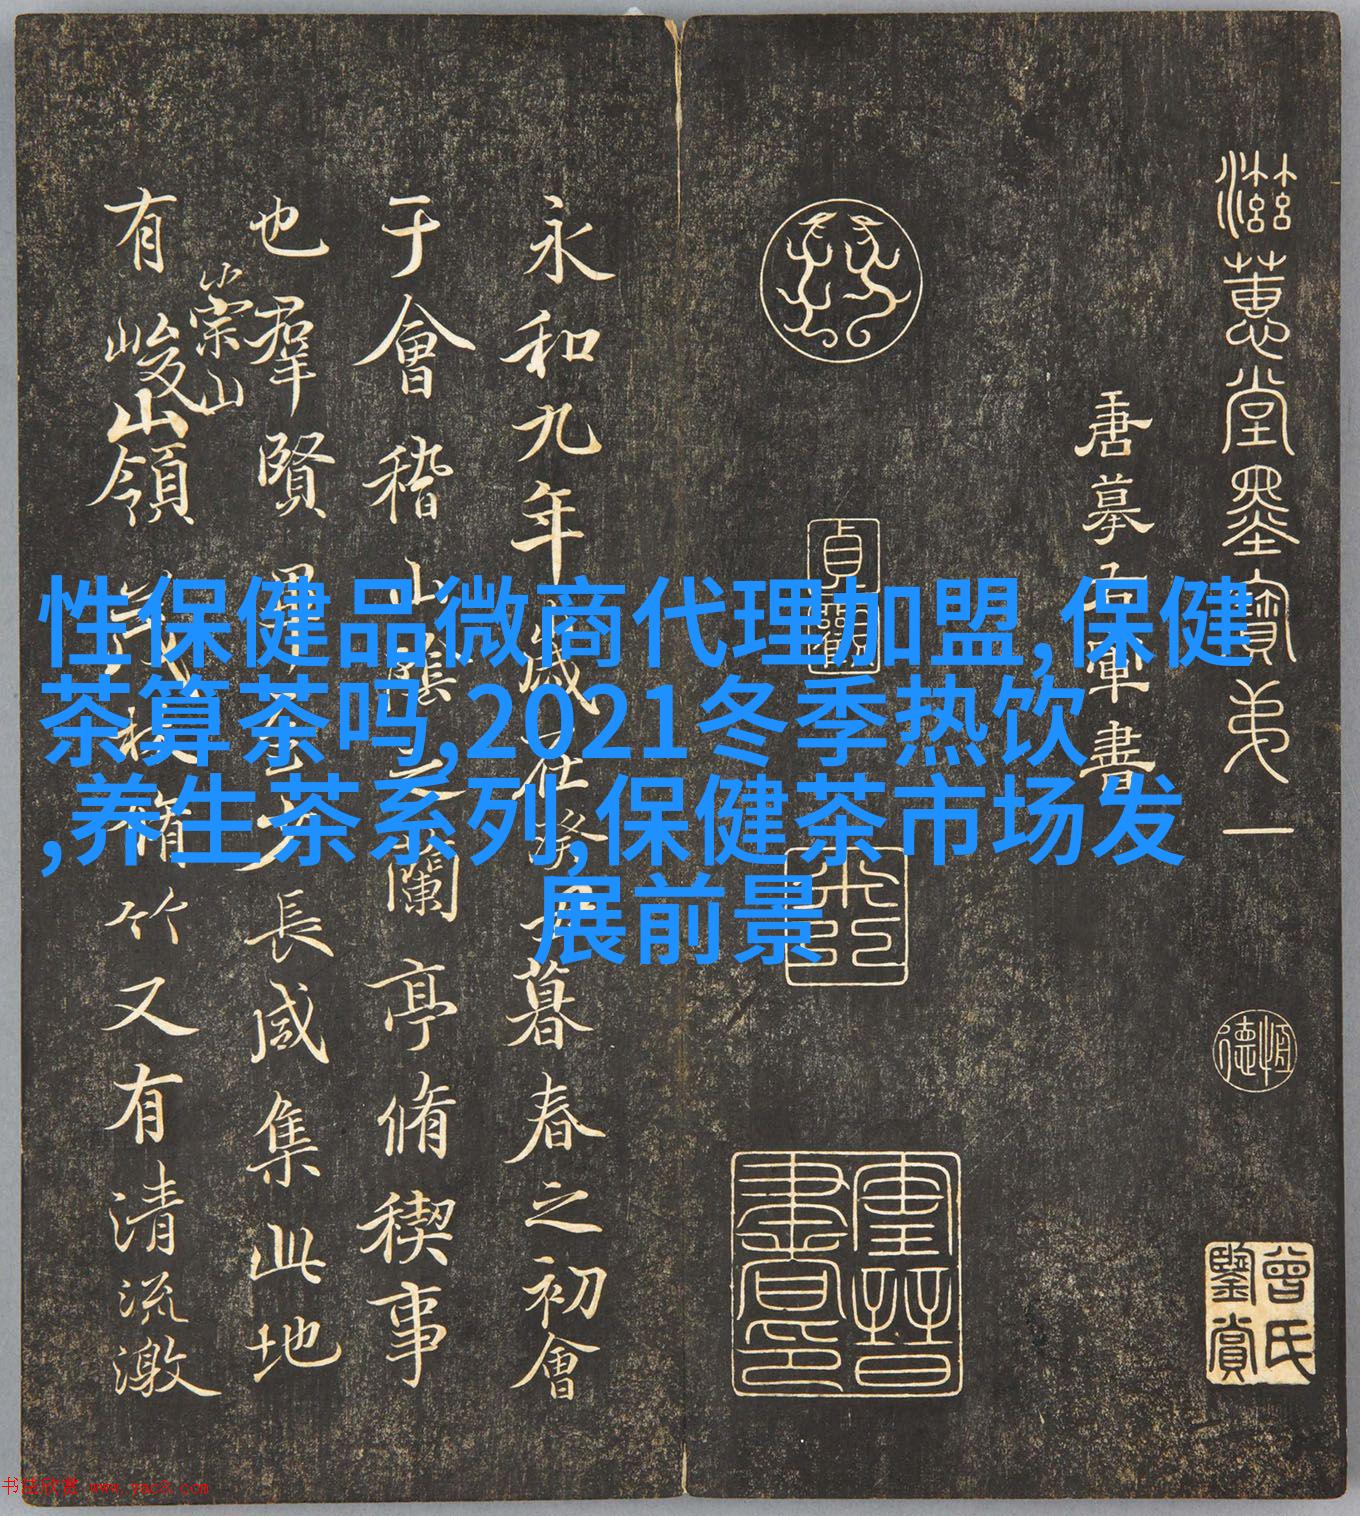 滋蕙堂墨寶弟一
唐摹右軍書
貞觀
恒德
曾氏
鑒賞
永和九年歲在癸丑暮春之初會
于會稽山陰之蘭亭脩稧事
也羣賢畢至少長咸集此地
崇山
有峻山領茂林脩竹又有清流激
性保健品微商代理加盟,保健
茶算茶吗,2021冬季热饮
,养生茶系列,保健茶市场发
展前景
书法欣赏 www.yac8.com